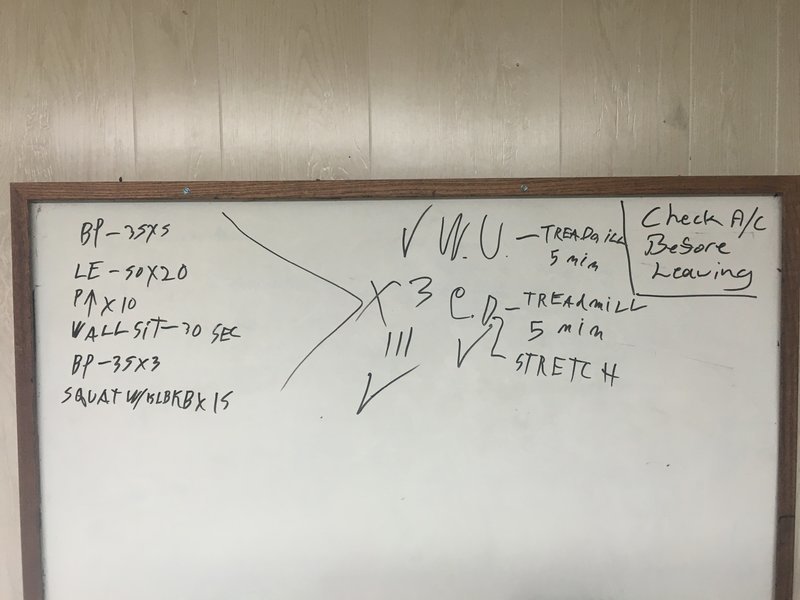 BP-35X5
LE-50X20
P↑X10
WALL SIT-30 SEC
BP-35X3
SQUAT W/15LBKBX15
X3
III
✓
✓ W.U. - TREADmILL
5 min
C.D. - TREADMILL
5 min
✓ STRETCH
Check A/C
Before
Leaving